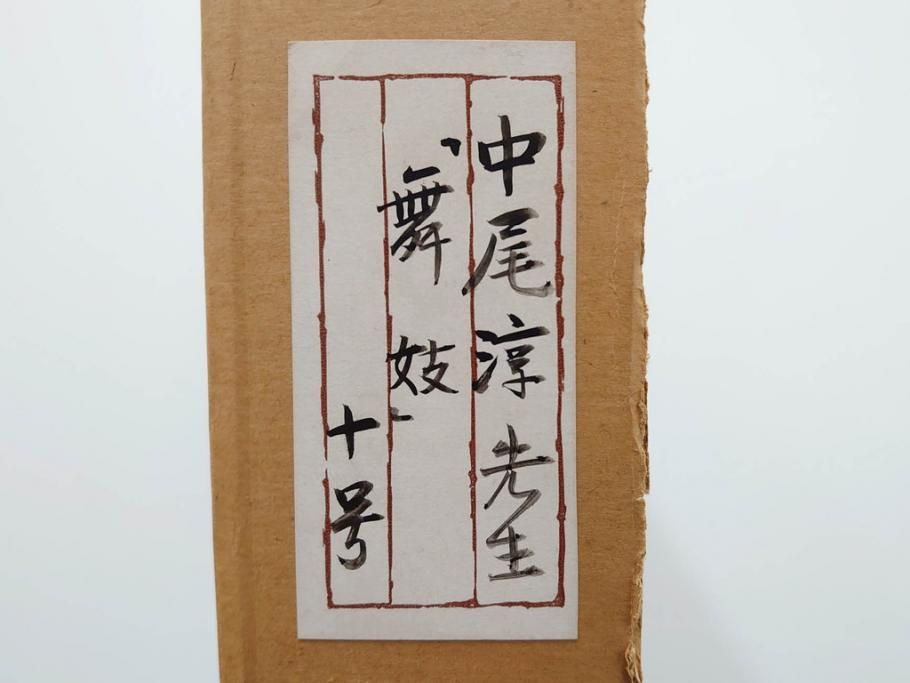 中尾淳先生
「舞妓」
十号